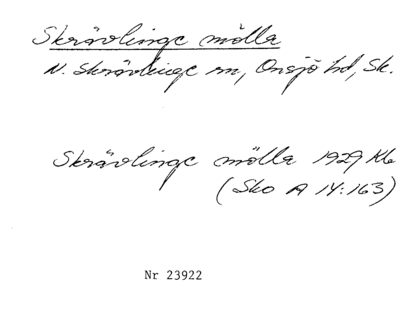 Skrävlinge mölla
N. Skrävlinge sn, Onsjö hd, Sk.
Skrävlinge mölla 1929 Kb
(Sko A 14:163)
Nr 23922